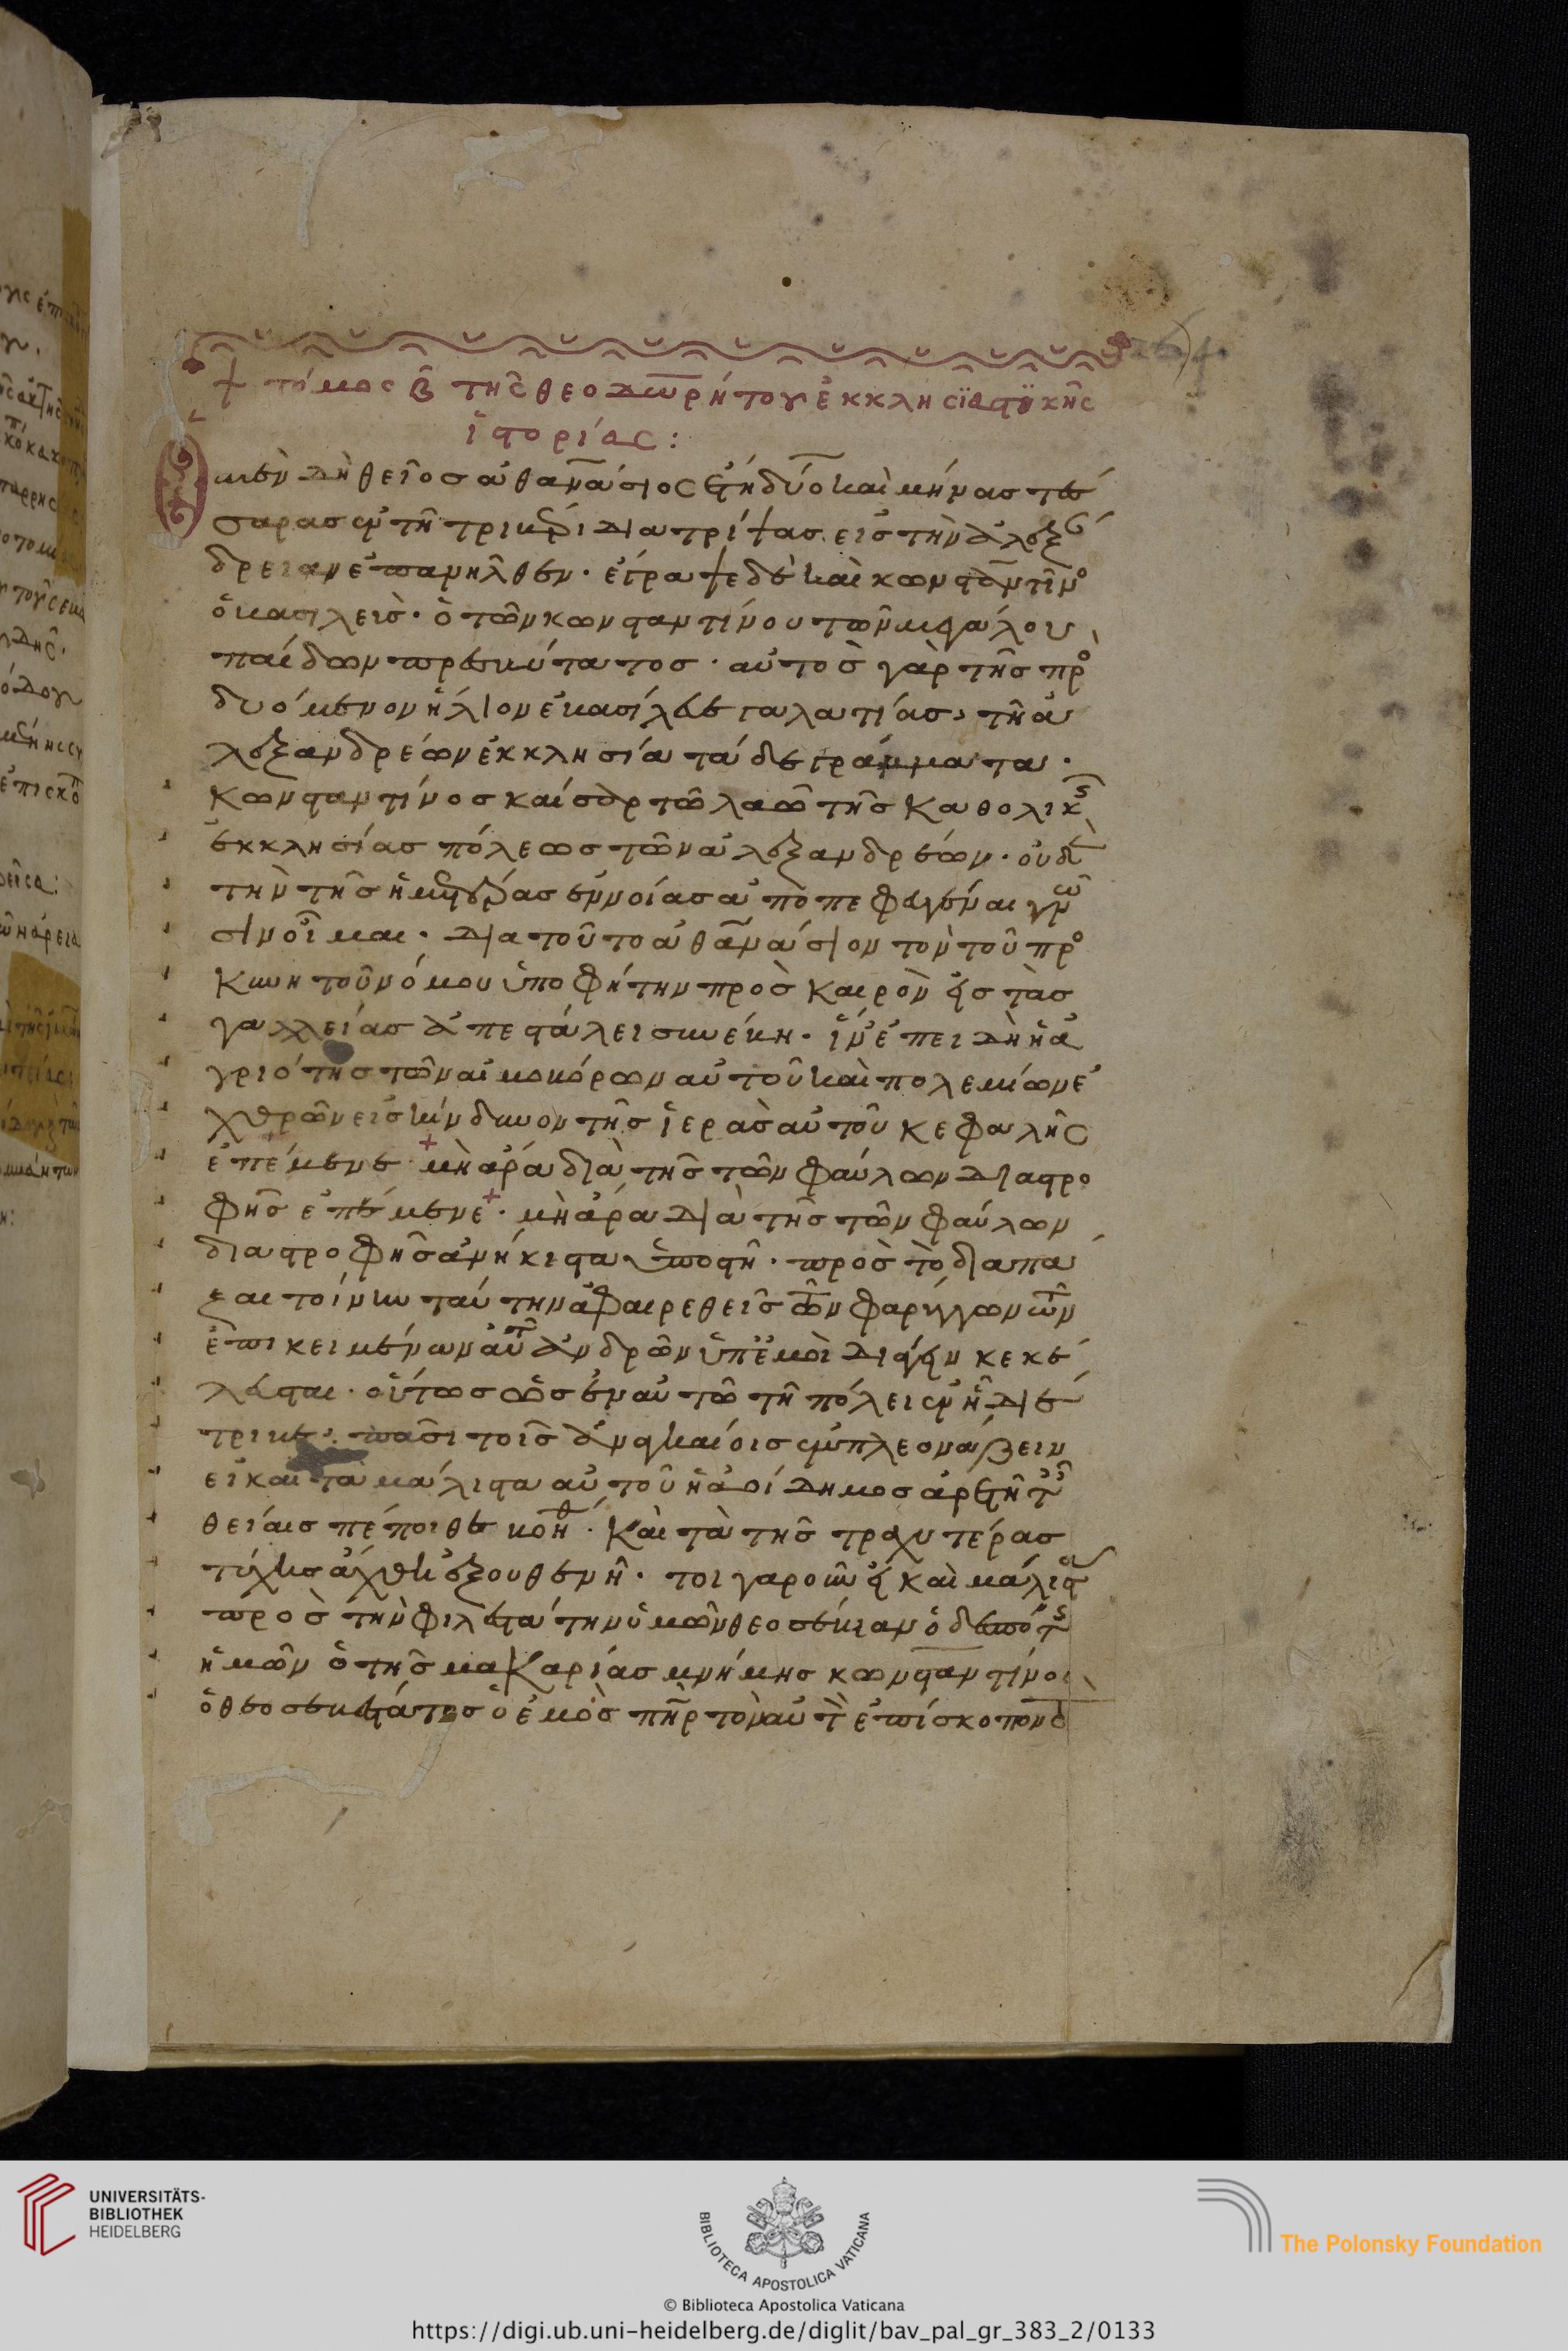 + τόμος β̄ τῆς θεοδωρήτου ἐκκλησϊαστϊκῆς
ἱστορίας:
Ὁ μὲν δὴ θεῖος ἀθανάσιος ἔτη δύο καὶ μήνας τέσ
σαρας ἐν τῆ τριβέρι διατρίψας εἰς τὴν ἀλεξάν
δρειαν ἐπανῆλθεν. ἔγραψε δὲ καὶ κωνσταντῖνο
ὁ βασιλεὺς. ὁ τῶν κωνσταντίνου τοῦ μεγάλου
παίδων πρεσβύτατος. αὐτὸς γὰρ τῆς πρὸ
δυόμενον ἥλιον ἐβασίλευε γαλατίας, τῆ ἀ
λεξανδρέων ἐκκλησία τάδε γράμματα.
Κωνσταντίνος καίσαρ τῶ λαῶ τῆς καθολικῆς
ἐκκλησίας πόλεως τῶν ἀλεξανδρέων. οὐδὲ
τὴν τῆς ἡμετέρας ἐννοίας ἀποπεφευγέναι γνῶ
σιν οἶμαι. διατοῦτο ἀθανάσιον τὸν τοῦ προ
κυνητοῦ νόμου ὑποφήτην πρὸς καιρὸν εἰς τὰς
γαλλείας ἀπεστάλει συνέβη. ἵν' ἐπειδὴ ἡ ἀ
γριότης τῶν αἱμοβόρων αὐτοῦ καὶ πολεμίων ἐ
χθρῶν εἰς κίνδυνον τῆς ἱερὰς αὐτοῦ κεφαλῆς
ἐπέμενε + μὴ ἄρα διὰ τῆς τῶν φαύλων διαστρο
φῆς ἐπέμενε +. μὴ ἄρα διὰ τῆς τῶν φαύλων
διαστροφῆς ἀνήκιστα ὑποστῆ. πρὸς τὸ διαπαί
ξαι τοίνυν ταύτην ἀφαιρεθεὶς τῶν φαρύγγων τῶν
ἐπικειμένων αὐτῶ ἀνδρῶν ὑπ' ἐμοὶ διάγειν κεκέ
λευσται. οὕτως ὡς ἐν αὐτῶ τῆ πόλει ἐν ἧ διέ
τριβε. πᾶσι τοῖς ἀναγκαίοις ἐμπλεονάζειν
εἰ καὶ τὰ μάλιστα αὐτοῦ ἡ ἀοίδημος ἀρετὴ ταῖς
θείαις πέποιθε βοηθ. καὶ τὰ τῆς τραχυτέρας
τύχης ἄχθη ἐξουθενῆ. τοιγαροῦν εἰ καὶ μάλιστα
πρὸς τὴν φιλτάτην ὑμῶν θεοσέβιαν ὁ δεσπότης
ἡμῶν ὁ τῆς μακαρίας μνήμης κωνσταντίνος
ὁ θεοσεβέστατος ὁ ἐμὸς πη̄ρ τὸν αὐτὸν ἐπίσκοπον
UNIVERSITÄTS-
BIBLIOTHEK
HEIDELBERG
BIBLIOTECA APOSTOLICA VATICANA
The Polonsky Foundation
© Biblioteca Apostolica Vaticana
https://digi.ub.uni-heidelberg.de/diglit/bav_pal_gr_383_2/0133